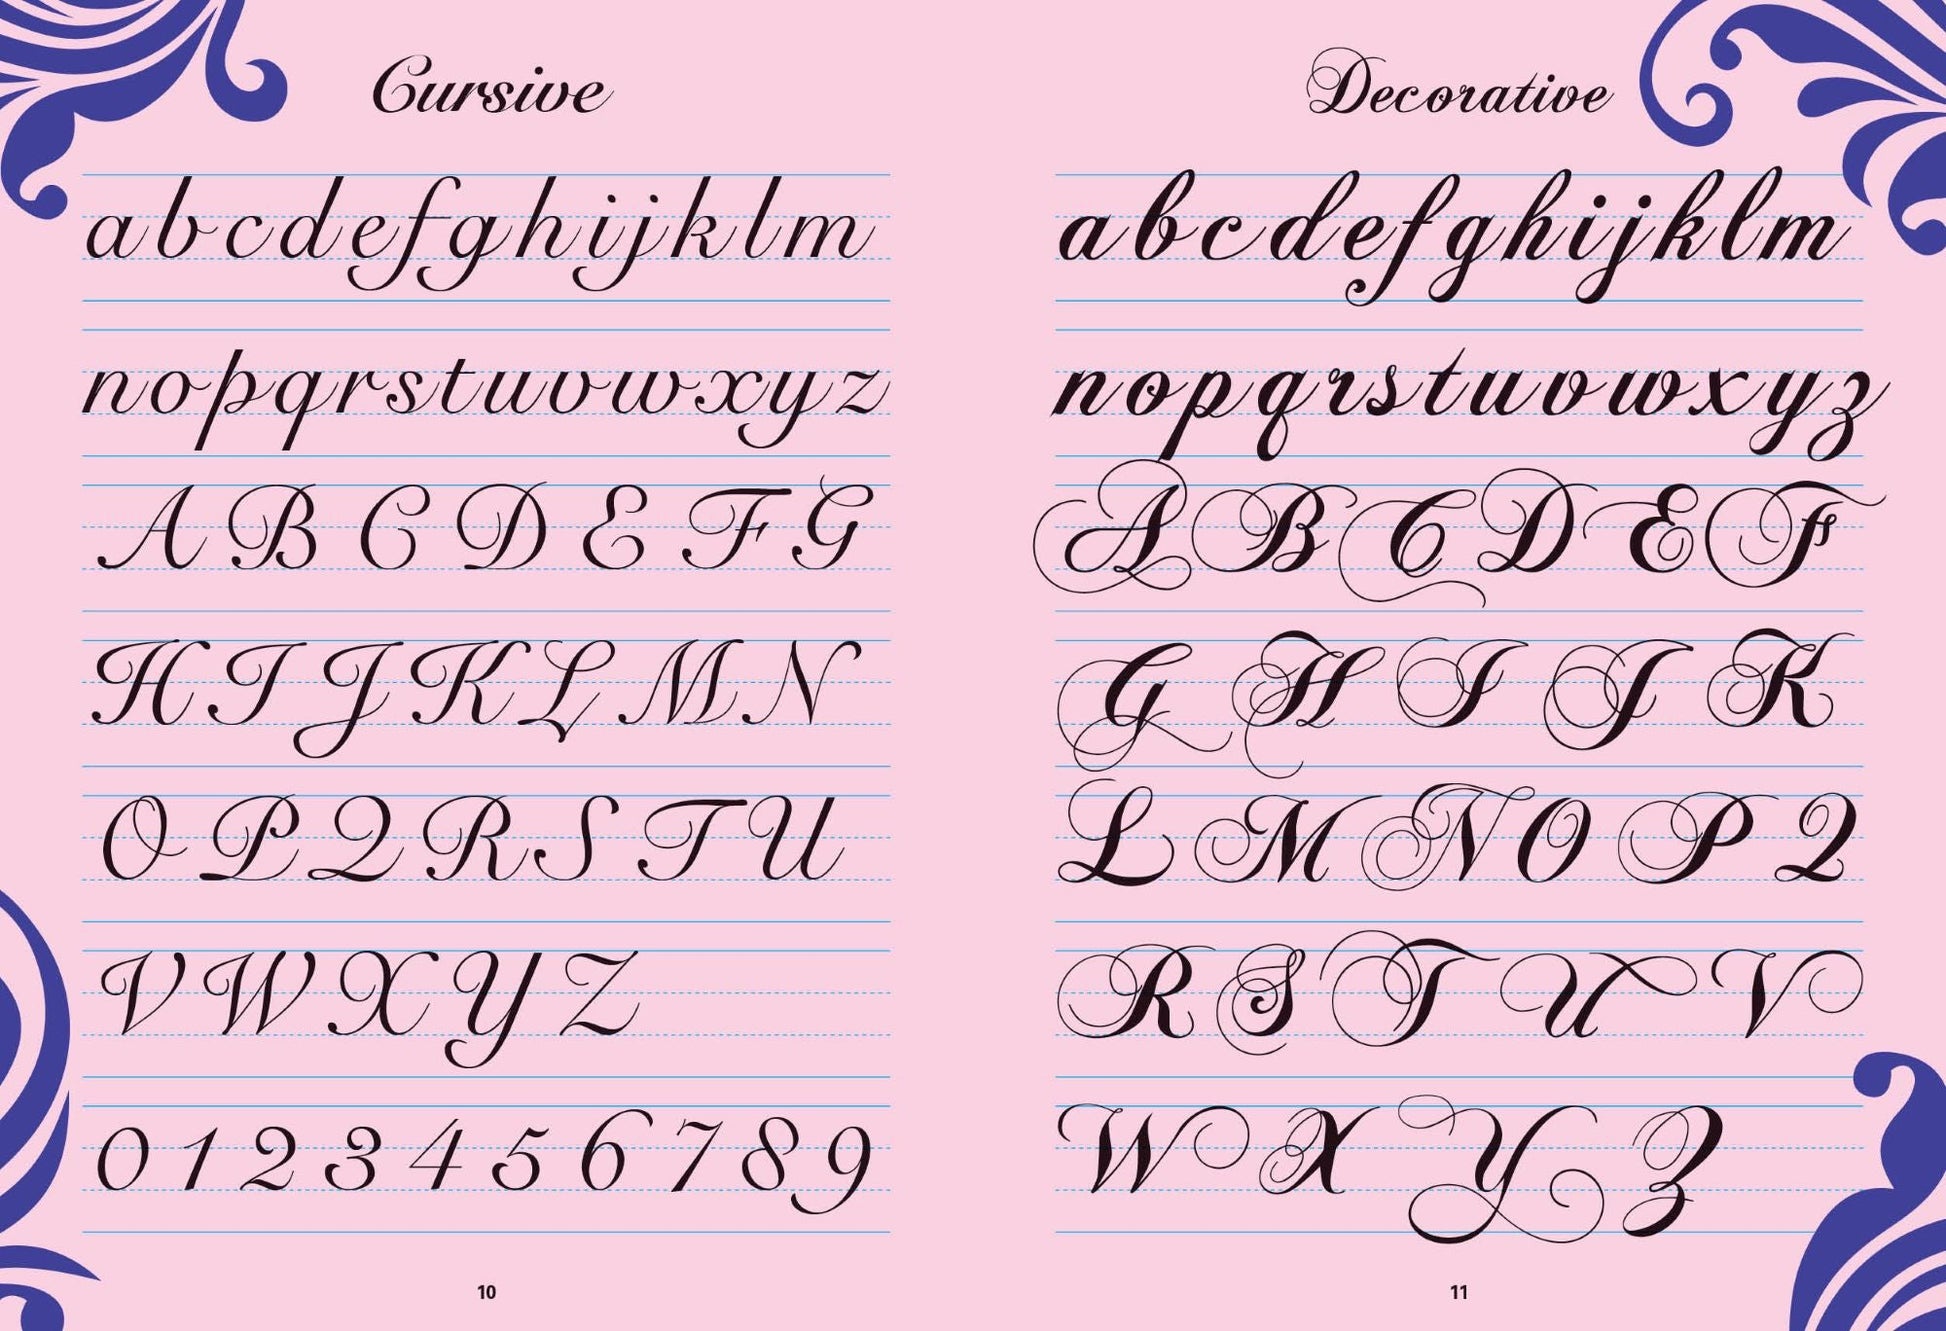 Cursive
abcdefghijklm
nopqrstuvwxyz
ABCDEFG
HIJKLMN
OPQRSTU
VWXYZ
0123456789
10
Decorative
abcdefghijklm
nopqrstuvwxyz
ABCDEF
GHIJK
LMNOPQ
RSTUV
WXYZ
11